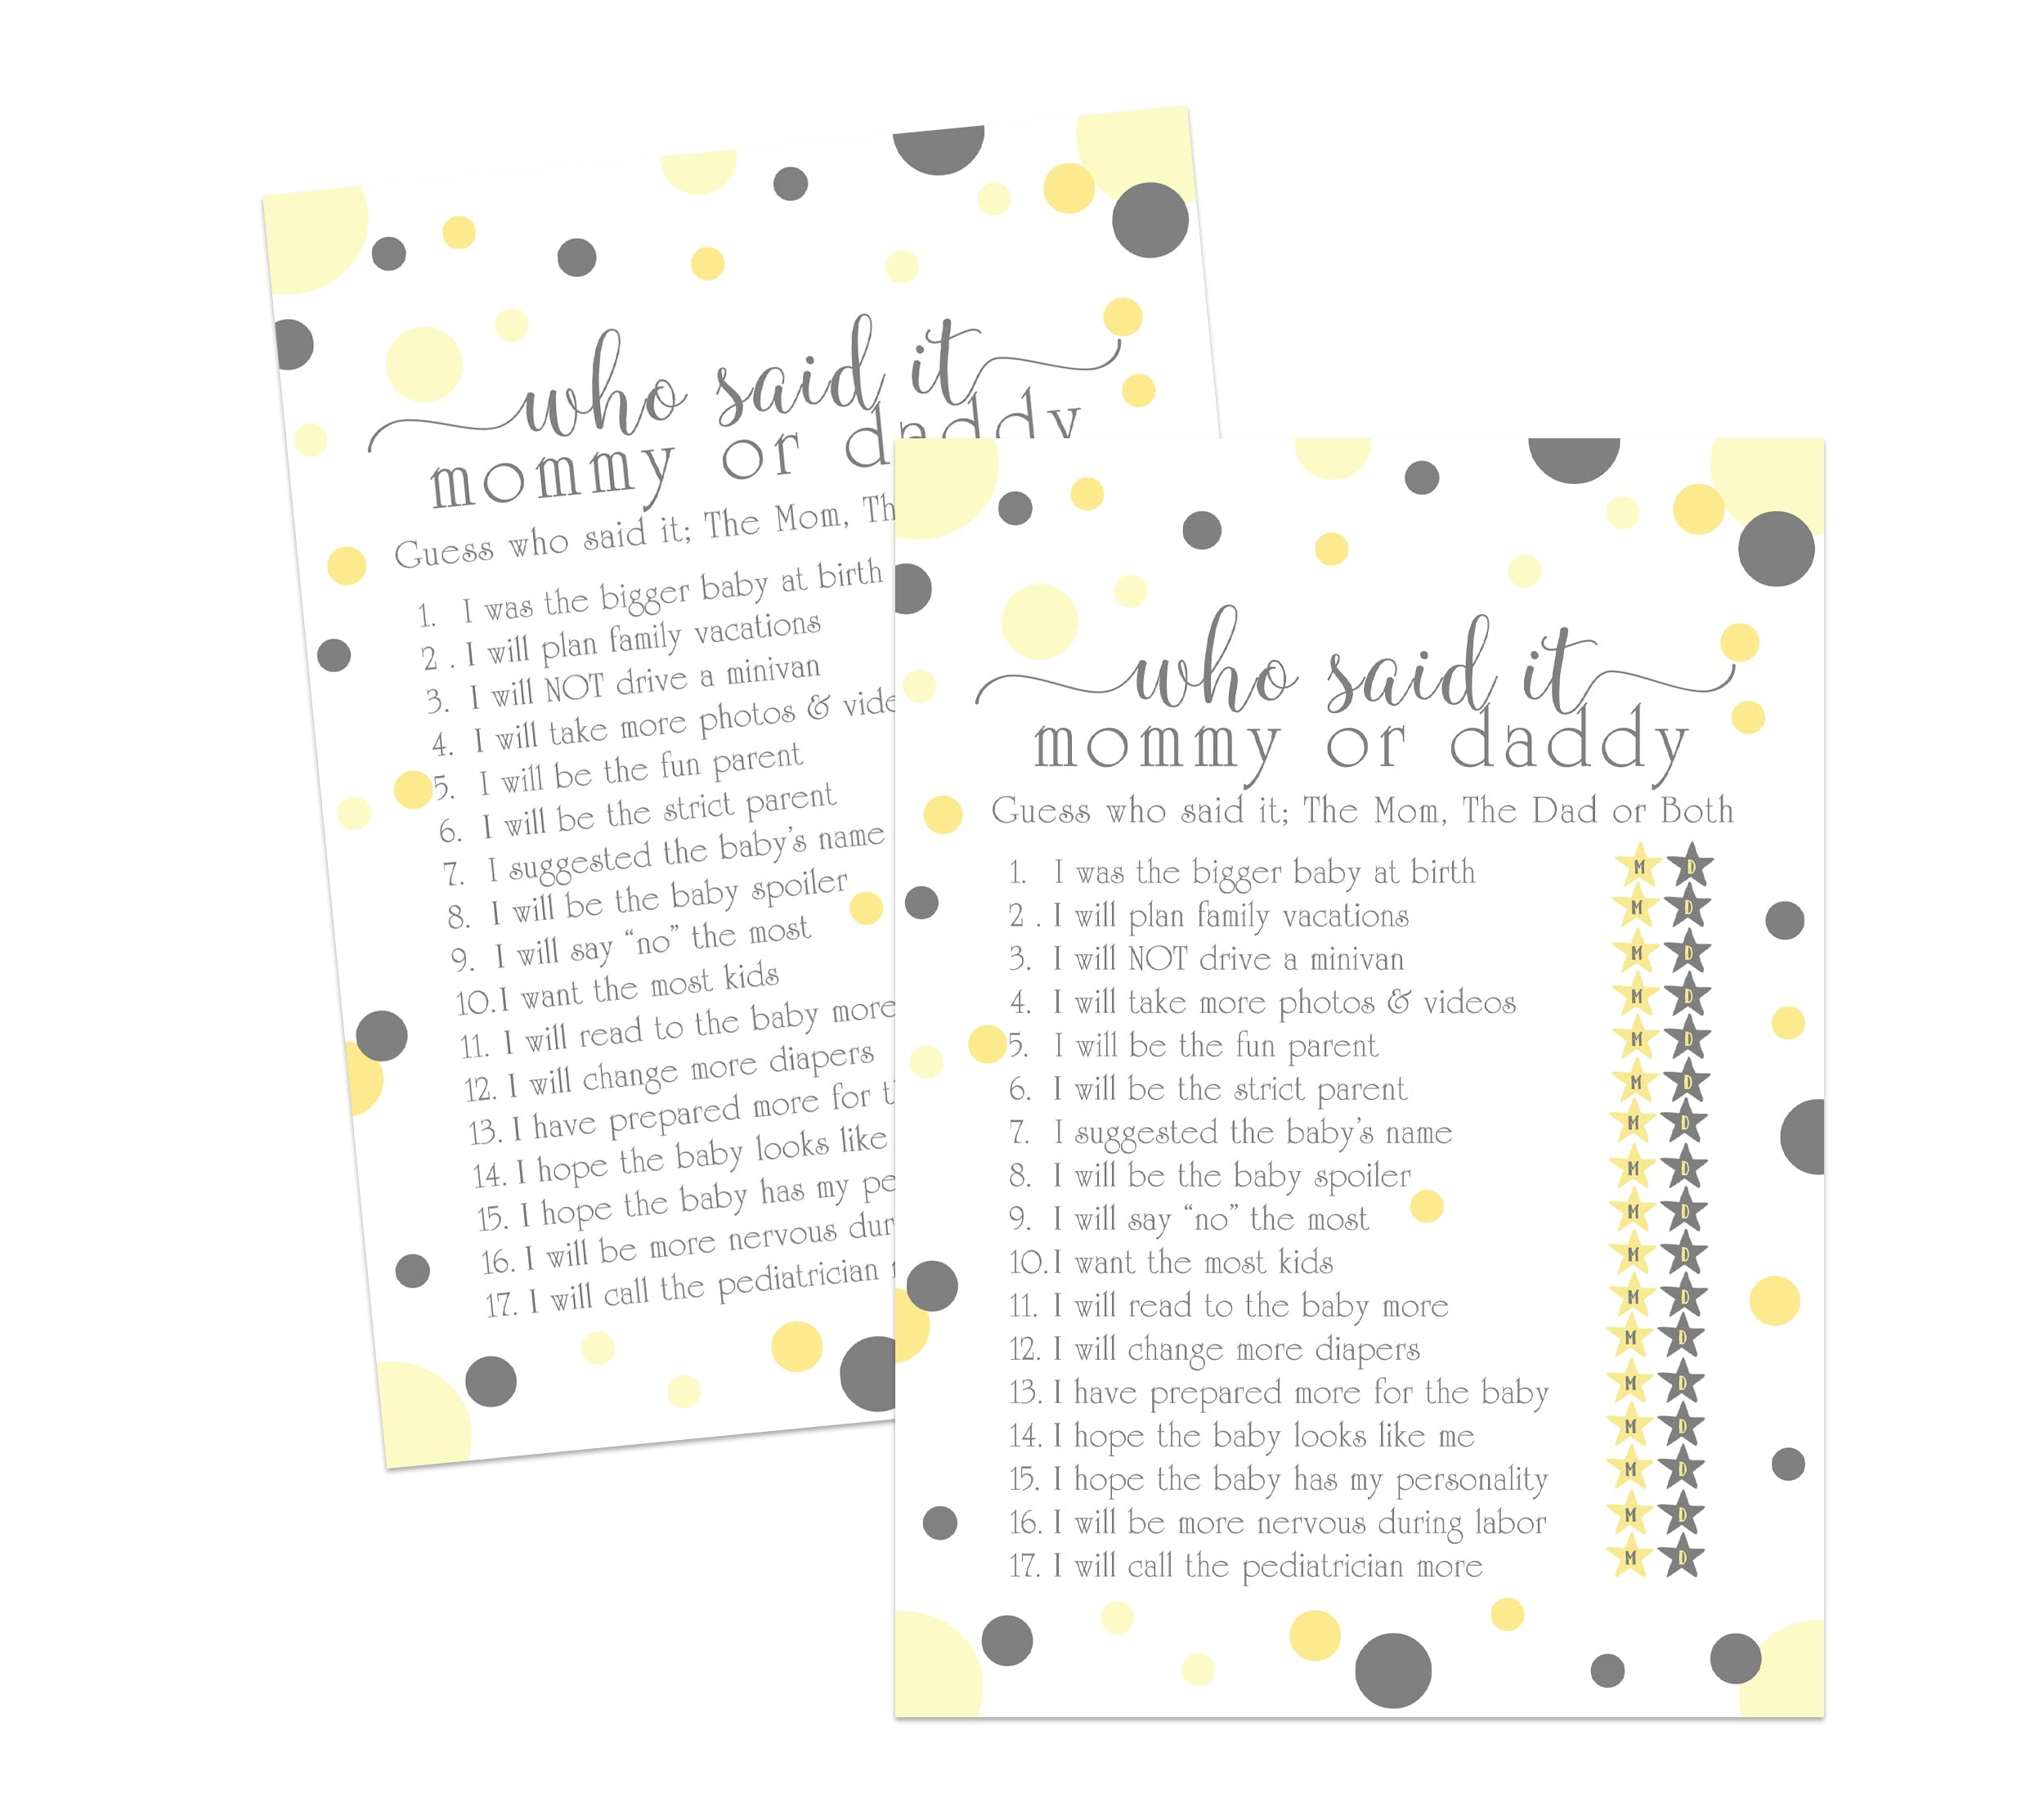 who said it
mommy or daddy
Guess who said it; The Mom, Th
1. I was the bigger baby at birth
2 . I will plan family vacations
3. I will NOT drive a minivan
4. I will take more photos & vide
5. I will be the fun parent
6. I will be the strict parent
7. I suggested the baby's name
8. I will be the baby spoiler
9. I will say “no” the most
10. I want the most kids
11. I will read to the baby more
12. I will change more diapers
13. I have prepared more for t
14. I hope the baby looks like
15. I hope the baby has my pe
16. I will be more nervous dur
17. I will call the pediatrician
who said it
mommy or daddy
Guess who said it; The Mom, The Dad or Both
1. I was the bigger baby at birth M D
2 . I will plan family vacations M D
3. I will NOT drive a minivan M D
4. I will take more photos & videos M D
5. I will be the fun parent M D
6. I will be the strict parent M D
7. I suggested the baby's name M D
8. I will be the baby spoiler M D
9. I will say “no” the most M D
10. I want the most kids M D
11. I will read to the baby more M D
12. I will change more diapers M D
13. I have prepared more for the baby M D
14. I hope the baby looks like me M D
15. I hope the baby has my personality M D
16. I will be more nervous during labor M D
17. I will call the pediatrician more M D